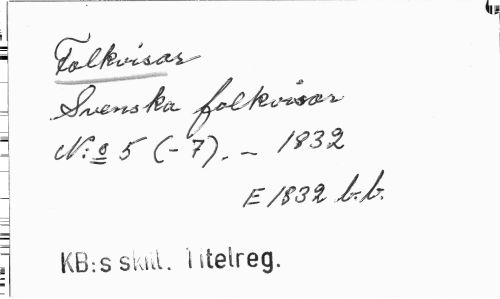 Folkvisor
Svenska folkvisor
N:o 5 (-7). - 1832
E 1832 b.b.
KB:s skill. Titelreg.